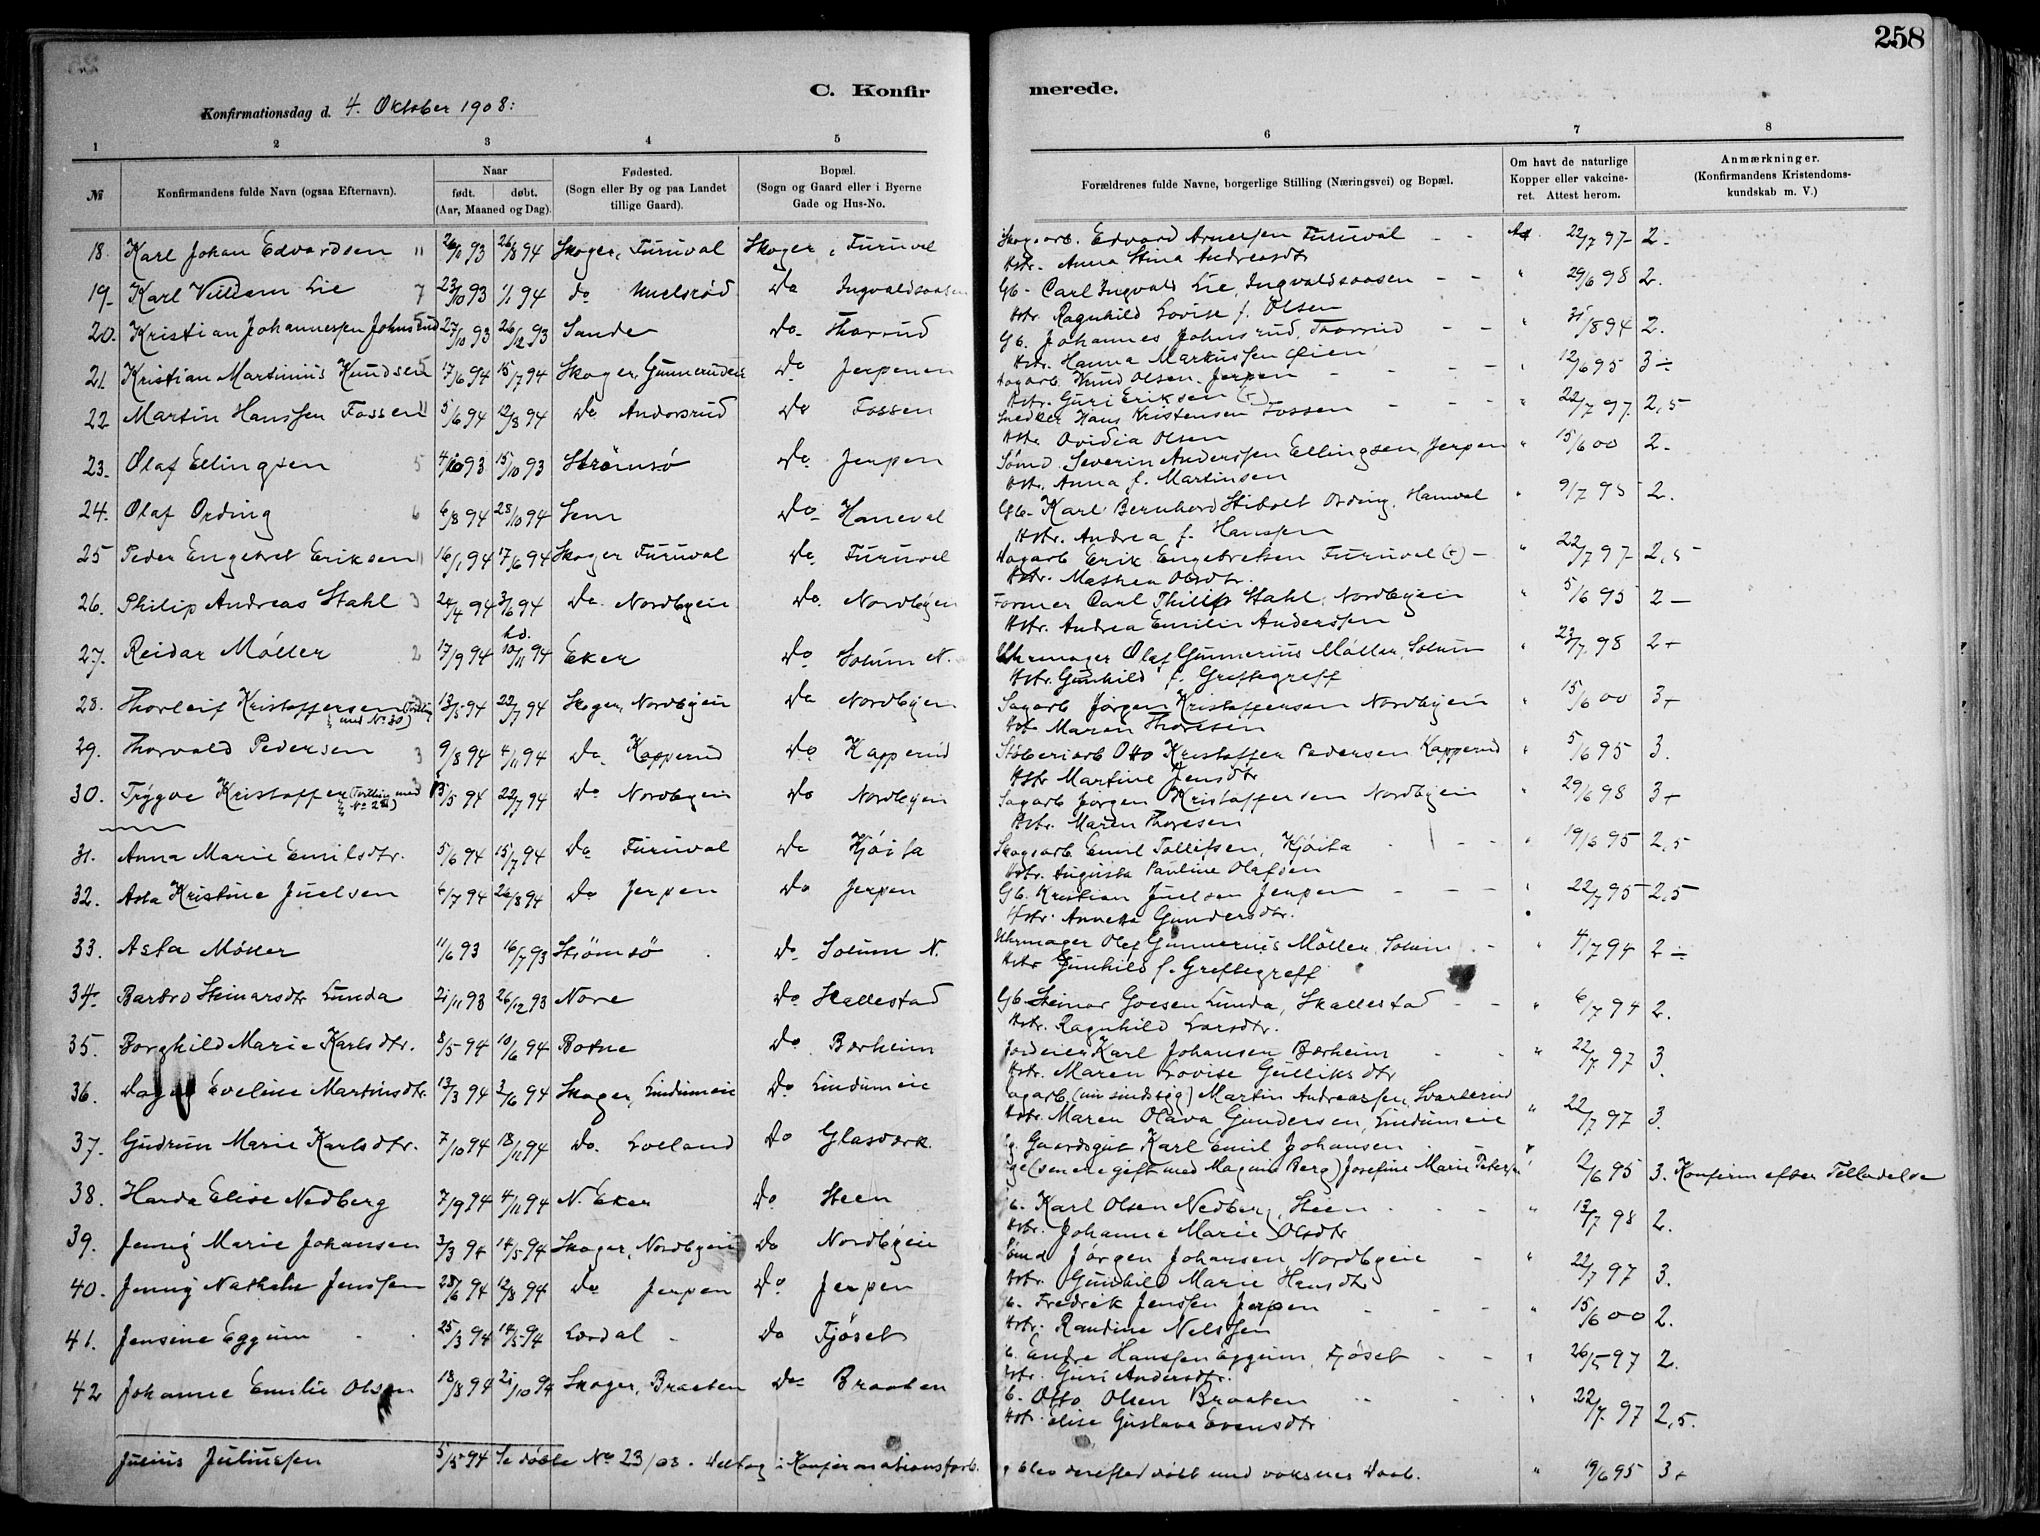 258
C. Konfirmerede.
Konfirmationsdag d. 4. Oktober 1908:
1 2 3 4 5 6 7 8
№ Konfirmandens fulde Navn (ogsaa Efternavn). Naar født. døbt. (Aar, Maaned og Dag). Fødested. (Sogn eller By og paa Landet tillige Gaard). Bopæl. (Sogn og Gaard eller i Byerne Gade og Hus-No. Forældrenes fulde Navne, borgerlige Stilling (Næringsvei) og Bopæl. Om havt de naturlige Kopper eller vakcineret. Attest herom. Anmærkninger. (Konfirmandens Kristendomskundskab m. V.)
18. Karl Johan Edvardsen 11 26/8 94 Skoger, Furuval Skoger, Furuval Skogsarb. Edvard Arnesen Furuval 22/7 97 2.
Hstr. Anna Stina Andreasdtr
19. Karl Villiam Lie 7 23/10 93 1/1 94 do Do Ingvaldsaasen Gb. Carl Ingvald Lie, Ingvaldsaasen " 29/6 98 2.
Hstr. Ragnhild Lovise f. Olsen
20. Kristian Johannessen Johnsrud 27/10 93 26/12 93 Sande Do Thorrud Gb. Johannes Johnsrud, Thorrud " 31/8 94 2.
Hstr. Hanna Markussen Øien
21. Kristian Martinius Knudsen 5 17/6 94 15/7 94 Skoger, Gunnerudeie Do Jerpenen Dagarb. Knud Olsen Jerpen " 12/6 95 3÷
Hstr. Guri Eriksen (†)
22 Martin Hanssen Fossen 11 5/6 94 12/8 94 Do Andorsrud Do Fossen Snedker Hans Kristensen Fossen " 22/7 97. 2,5
Hstr. Ovidia Olsen
23. Olaf Ellingsen 5 4/10 93 15/10 93 Strömsö Do Jerpen Sömd. Severin Anderssen Ellingsen, Jerpen " 15/6 00 2.
Hstr. Anna f. Martinsen
24. Olaf Ording 6 6/8 94 28/10 94 Sem Do Haneval Gb. Karl Bernhard Stibolt Ording, Haneval " 9/7 95 2.
Hstr. Andrea f. Hanssen
25 Peder Engebret Eriksen 11 16/1 94 17/6 94 Skoger Furuval Do Furuval Dagarb Erik Engebretsen Furuval (†) " 22/7 97 2,5
Hstr. Mathea Olsdtr.
26. Philip Andreas Stahl 3 24/4 94 3/6 94 Do Nordbyeie Do. Nordbyen Former Carl Philip Stahl, Nordbyeie " 5/6 95 2 —
Hstr. Andrea Emilie Anderssen
27. Reidar Möller 2 17/9 94 hd. 10/11 94 Eker Do Solum N. Uhrmager Olaf Gunnerius Möller, Solum " 23/7 98 2+
Hstr. Gunhild f. Greftegreff
28. Thorleif Kristoffersen (Tvilling med No 30) 13/5 94 22/7 94 Skoger, Nordbyeie Do Nordbyen Sagarb Jørgen Kristoffersen Nordbyeie " 15/6 00 3+
Hstr. Maren Thoresen
29. Thorvald Pedersen 3 9/8 94 4/11 94 Do Kopperud Do Kopperud Støberiarb Otto Kristoffer Pedersen Kopperud " 5/6 95 3.
Hstr Martine Jensdtr
30. Trygve Kristoffersen (Tvilling med No 28) 13/5 94 22/7 94 Do Nordbyeie Do Nordbyen Sagarb Jørgen Kristoffersen Nordbyeie " 29/6 98 3+
Hstr. Maren Thoresen
31. Anna Marie Emilsdtr. 5/6 94 15/7 94 Do Furuval Do Kjøita Skogsarb. Emil Tollefsen, Kjøita " 19/6 95 2,5
Hstr. Augusta Pauline Olafsen
32. Asta Kristine Juelsen 4/7 94 26/8 94 Do Jerpen Do Jerpen Gb. Kristian Juelsen Jerpen " 22/7 95 2,5
Hstr. Annette Gundersdtr.
33. Asta Möller 11/6 93 16/7 93 Strömsö Do Solum N. Uhrmager Olaf Gunnerius Möller, Solum " 4/7 94 2÷
Hstr Gunhild f. Greftegreff
34. Barbro Steinarsdtr Lunda 21/11 93 26/12 93 Nore Do Skallestad Gb. Steinar Lunda, Skallestad " 6/7 94 2.
Hstr. Ragnhild Larsdtr.
35. Borghild Marie Karlsdtr. 8/5 94 10/6 94 Botne Do Bærheim Jordeier Karl Johansen Bærheim " 22/7 97 3.
Hstr. Maren Lovise Gulliksdtr
36. Eveline Martinsdtr 13/3 94 3/6 94 Skoger, Lindumeie Do Lindumeie Dagarb. (nu sindssyg) Martin Andreassen, Svarterud " 22/7 97 3.
Hstr. Maren Olava Gundersen, Lindumeie
37. Gudrun Marie Karlsdtr. 7/10 94 18/11 94 Do. Loeland Do Glasværk. Gaardsgut Karl Emil Johansen " 12/6 95 3. Konfirm. efter Tilladelse
Pige (senere gift med Magnus Berg) Josefine Marie Petersen
38. Harda Elise Nedberg 7/9 94 4/11 94 N. Eker Do Steen Gb. Karl Olsen Nedberg, Steen " 13/7 98 2.
Hstr. Johanne Marie Olsdtr
39. Jenny Marie Johansen 3/3 94 14/5 94 Skoger, Nordbyeie Do Nordbyeie Sömd Jørgen Johansen, Nordbyeie " 22/7 97 3.
Hstr. Gunhild Marie Hansdtr
40. Jenny Nathalie Jenssen 28/6 94 12/8 94 Do Jerpen Do Jerpen Gb. Fredrik Jenssen Jerpen " 15/6 00 2.
Hstr. Randine Nelssen
41. Jensine Eggum 25/3 94 14/5 94 Lærdal Do Fjöset Gb. Endre Hanssen Eggum, Fjöset " 26/5 97 2.
Hstr. Guri Andersdtr.
42 Johanne Emilie Olsen 18/8 94 21/10 94 Skoger, Braaten Do Braaten Gb. Otto Olsen Braaten " 22/7 97 2,5.
Hstr. Elise Gustava Evensdtr
Julius Juliussen 5/5 94 Se döbte No 23/08. Deltog i Konfirmationsforb. og blev derefter döbt med voksnes Daab. " 19/6 95 3+